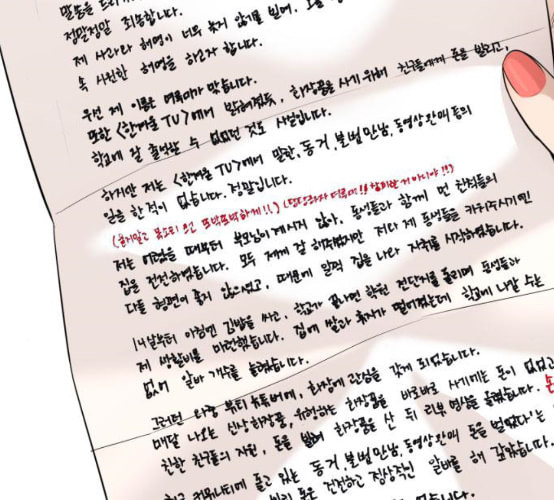 말씀을 드리게
정말정말 죄송합니다.
제 사과와 해명이 너무 늦지 않기를 빌며, 그럼
속 시원한 해명을 하고자 합니다.
우선 제 이름은 여목마가 맞습니다.
또한 <한겨울 TV>에서 밝혀졌듯, 화장품을 사기 위해 친구들에게 돈을 빌리고,
학교에 잘 출석할 수 없었던 것도 사실입니다.
하지만 저는 <한겨울 TV>에서 말한, 동거, 불법만남, 동영상판매 등의
일을 한 적이 없습니다. 정말입니다.
저는 어렸을 때부터 부모님이 계시지 않아, 동생들과 함께 먼 친척들의
집을 전전하였습니다. 모두 제게 잘 해주셨지만 저나 제 동생들을 키워주시기엔
다들 형편이 좋지 않으셨고, 때문에 일찍 집을 나와 자취를 시작하였습니다.
14살부터 아침엔 김밥을 싸고, 학교가 끝나면 학원 전단지를 돌리며 동생들과
제 생활비를 마련했습니다. 집에 쌀과 휴지가 떨어졌는데 학교에 나갈 수는
없어 알바 개수를 늘렸습니다.
그러던 와중 뷰티 뉴튜버에, 화장에 관심을 갖게 되었습니다.
매달 나오는 신상화장품, 유행하는 화장품을 바로바로 사기에는 돈이 없었고
친한 친구들의 지원, 돈을 빌려 화장품을 산 뒤 리뷰 영상을 올렸습니다.
커뮤니티에 돌고 있는 동거, 불법만남, 동영상판매 돈을 벌었다'는
돈은 건전하고 정상적인 알바를 해 갚았습니다.